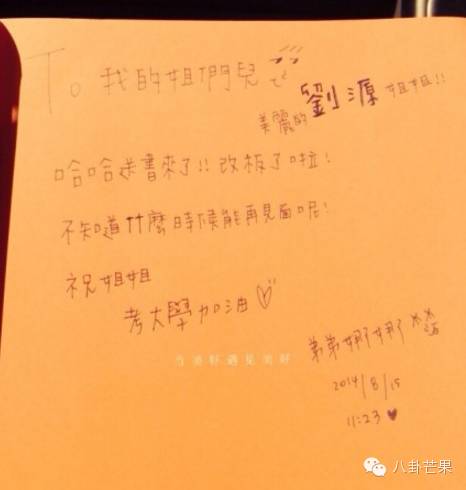 To。我的姐們兒
美麗的劉源姐姐!!
哈哈送書來了!!改板了啦!
不知道什麼時候能再見面呢!
祝姐姐
考大學加油♡
当美好遇见美好
弟弟娜娜
2014/8/15
11:23♥
八卦芒果